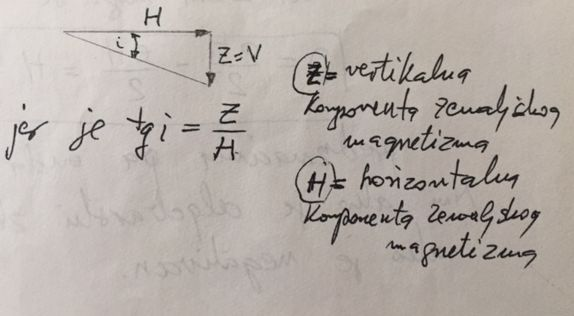 H
i
Z=V
jer je tg i = Z/H
Z = vertikalna
komponenta zemaljskog
magnetizma
H = horizontalna
komponenta zemaljskog
magnetizma